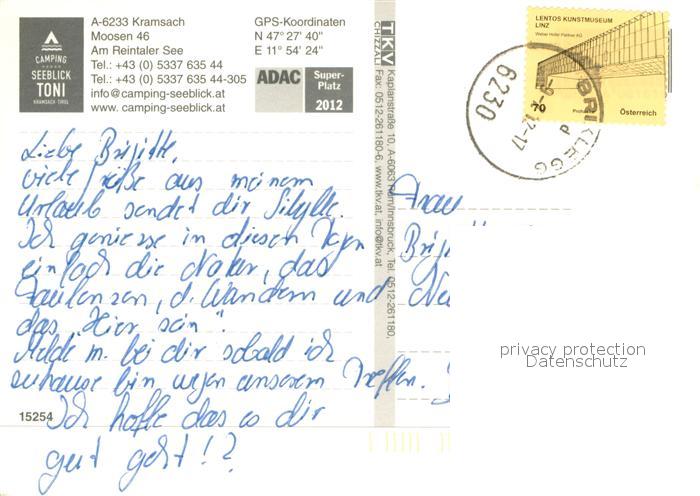 A-6233 Kramsach
Moosen 46
Am Reintaler See
Tel.: +43 (0) 5337 635 44
Tel.: +43 (0) 5337 635 44-305
info@camping-seeblick.at
www. camping-seeblick.at
GPS-Koordinaten
N 47° 27' 40"
E 11° 54' 24"
CAMPING
SEEBLICK
TONI
KRAMSACH-TIROL
ADAC
Super-
Platz
2012
TKV
CHIZZALI
Kaplanstraße 10, A-6063 Rum/Innsbruck, Tel. 0512-261180,
Fax: 0512-261180-6, www.tkv.at, info@tkv.at
LENTOS KUNSTMUSEUM
LINZ
Weber Hofer Partner AG
70
Österreich
BRIXLEGG
6230
Liebe Brigitte,
viele Grüße aus meinem
Urlaub sendet dir Sibylle.
Ich geniesse in diesen Tagen
einfach die Natur, das
Faulenzen, d. Wandern und
das "Hier sein".
Melde m. bei dir sobald ich
zuhause bin wegen unserem Treffen.
Ich hoffe das es dir
gut geht!?
15254
Frau
privacy protection
Datenschutz